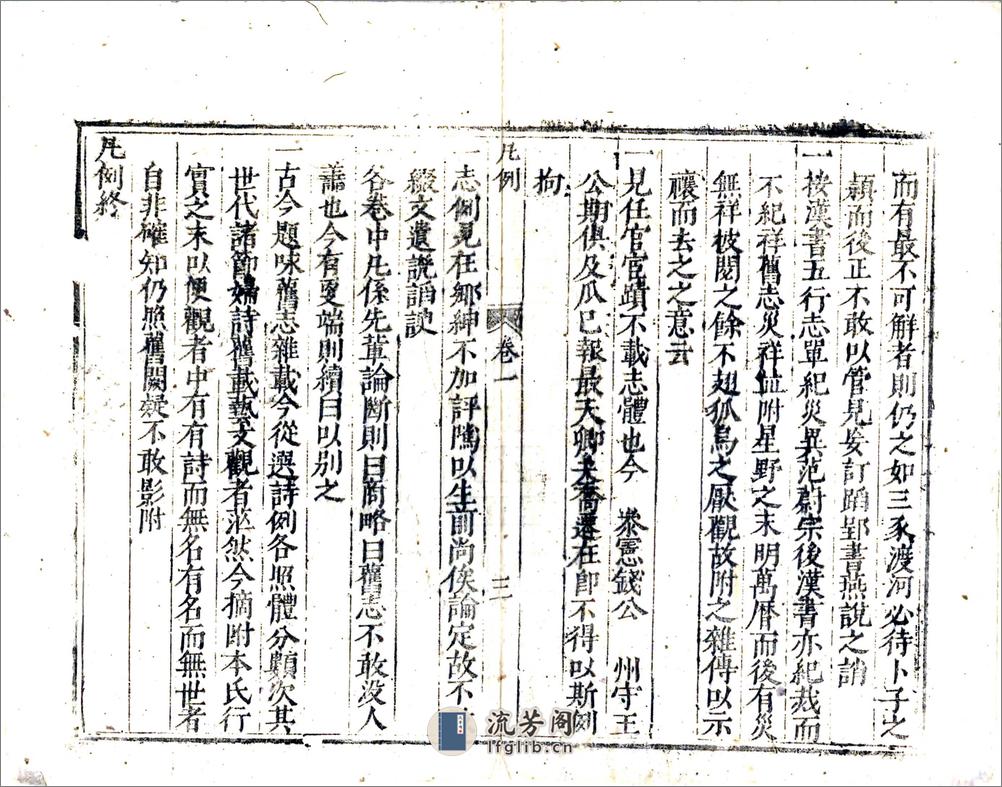 而有最不可解者則仍之如三豕渡河必待卜子之
穎而後正不敢以管見妄訂蹈郢書燕說之誚
一按漢書五行志單紀災異范蔚宗後漢書亦紀災而
不紀祥舊志災祥並附星野之末明萬曆而後有災
無祥披閱之餘不趐狐烏之厭觀故附之雜傳以示
禳而去之之意云
一見任官官蹟不載志體也今 叅憲錢公 州守王
公期俱及瓜已報最天卿夫喬遷在卽不得以斯例
拘
凡例 卷一 三
一志例見在鄉紳不加評隲以生前尚俟論定故不
綴文遺謊謟諛
一各卷中凡係先輩論斷則曰商略曰舊志不敢没人
善也今有更端則續曰以别之
一古今題咏舊志雜載今從選詩例各照體分類次其
世代諸節婦詩舊載藝文觀者茫然今摘附本氏行
實之末以便觀者中有有詩而無名有名而無世者
自非確知仍照舊闕疑不敢影附
凡例終
流芳阁
lfglib.cn